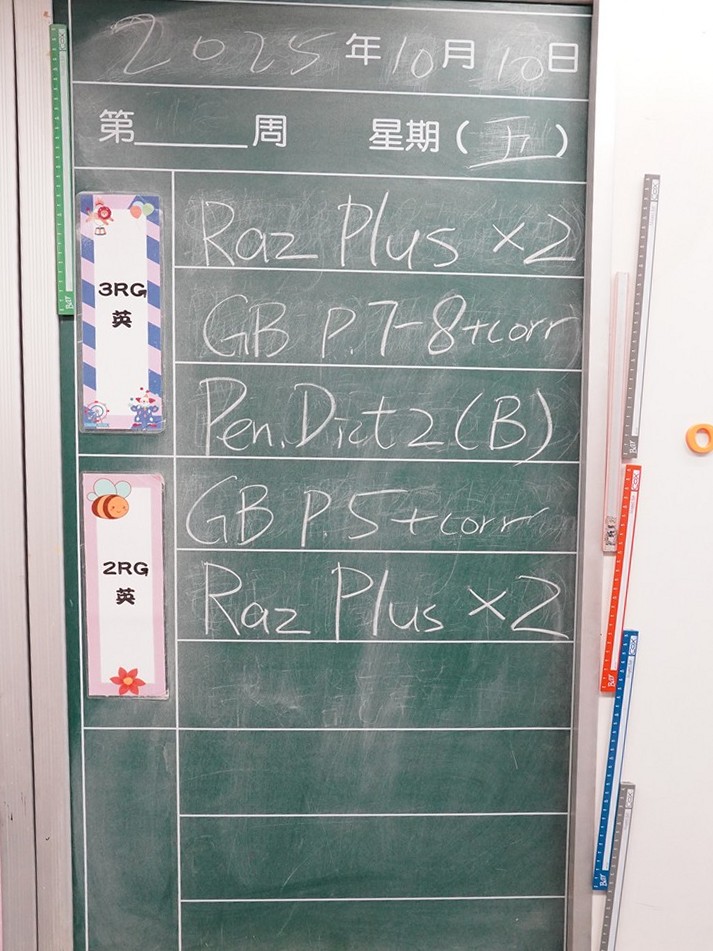 2025年10月10日
第______周 星期(五)
3RG
英
Raz Plus ×2
GB P.7-8+corr
Pen.Dict 2 (B)
2RG
英
GB P.5+corr
Raz Plus ×2